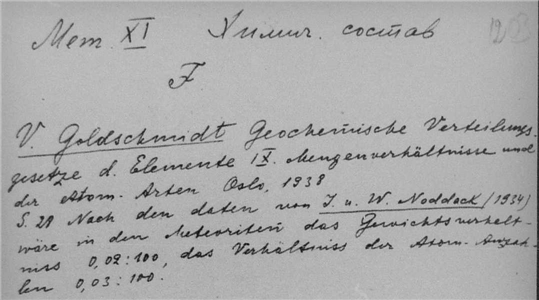 Мет. XI Химич. состав 1203
F
V. Goldschmidt Geochemische Verteilungs-
gesetze d. Elemente IX. Mengenverhältnisse und
der Atom-Arten Oslo, 1938
S. 21 Nach den daten von I. u. W. Noddack (1934)
wäre in den Meteoriten das Gewichtsverhält-
niss 0,02:100, das Verhältniss der Atom-Anzah-
len 0,03:100.